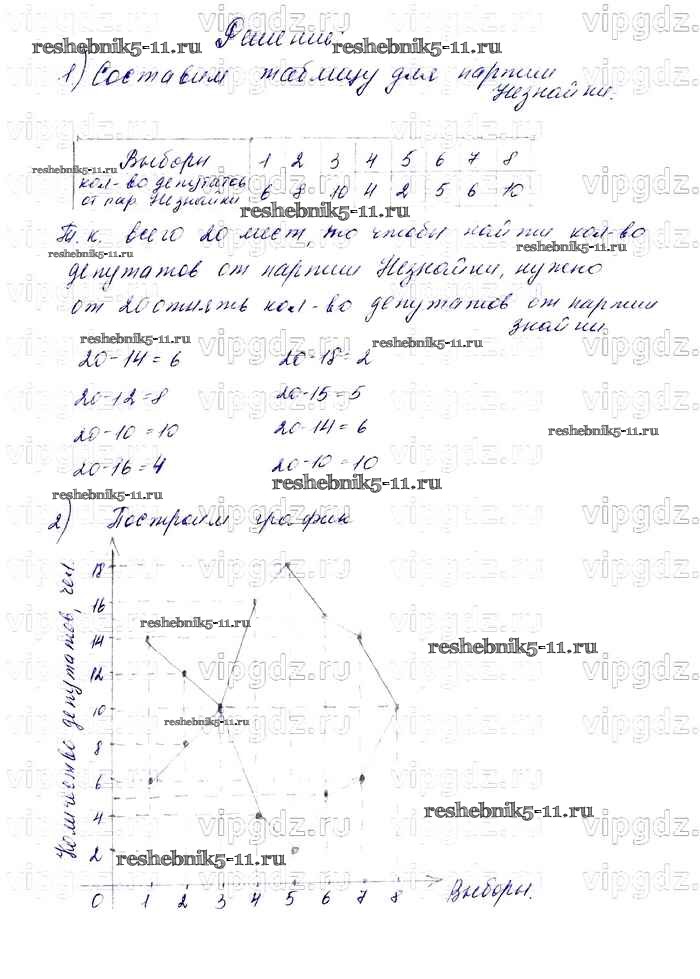 Решение:
1) Составим таблицу для партии
Незнайки.
Выборы 1 2 3 4 5 6 7 8
кол-во депутатов
от пар. Незнайки 6 8 10 4 2 5 6 10
Т.к. всего 20 мест, то чтобы найти кол-во
депутатов от партии Незнайки, нужно
от 20 отнять кол-во депутатов от партии
Знайки.
20-14=6 20-18=2
20-12=8 20-15=5
20-10=10 20-14=6
20-16=4 20-10=10
2) Построим график
Количество депутатов, чел.
18
16
14
12
10
8
6
4
2
0 1 2 3 4 5 6 7 8 Выборы.
reshebnik5-11.ru
vipgdz.ru